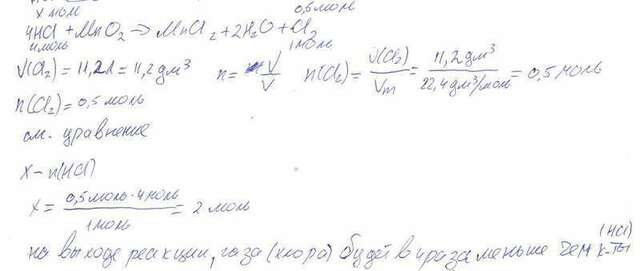 x моль 0,5 моль
4HCl + MnO2 → MnCl2 + 2H2O + Cl2
4моль 1моль
V(Cl2) = 11,2л = 11,2 дм³ n = V/V n(Cl2) = V(Cl2)/Vm = 11,2 дм³/22,4 дм³/моль = 0,5 моль
n(Cl2) = 0,5 моль
см. уравнение
x – n(HCl)
x = 0,5 моль · 4 моль / 1 моль = 2 моль
на выходе реакции, газа (хлора) будет в 4 раза меньше чем к-ты (HCl)